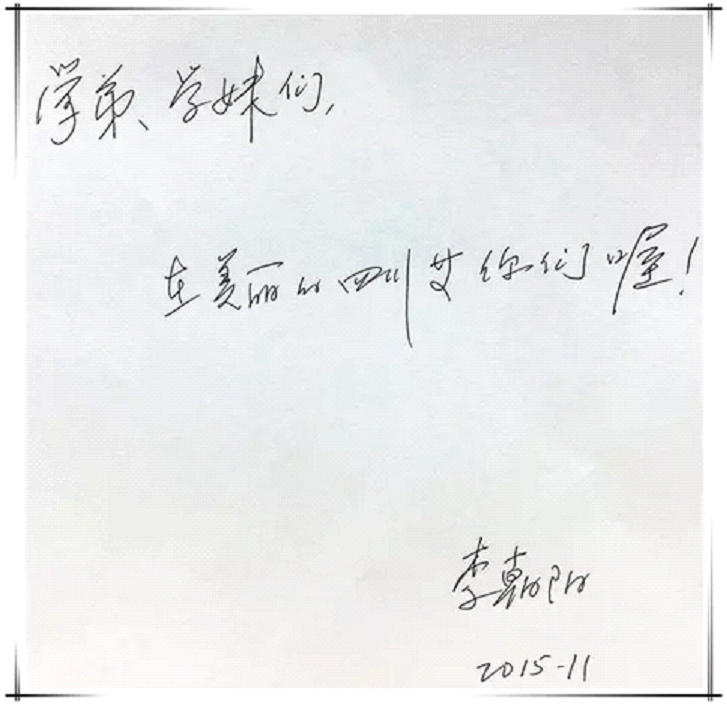 学弟、学妹们,
在美丽的四川等你们喔!
李朝阳
2015-11